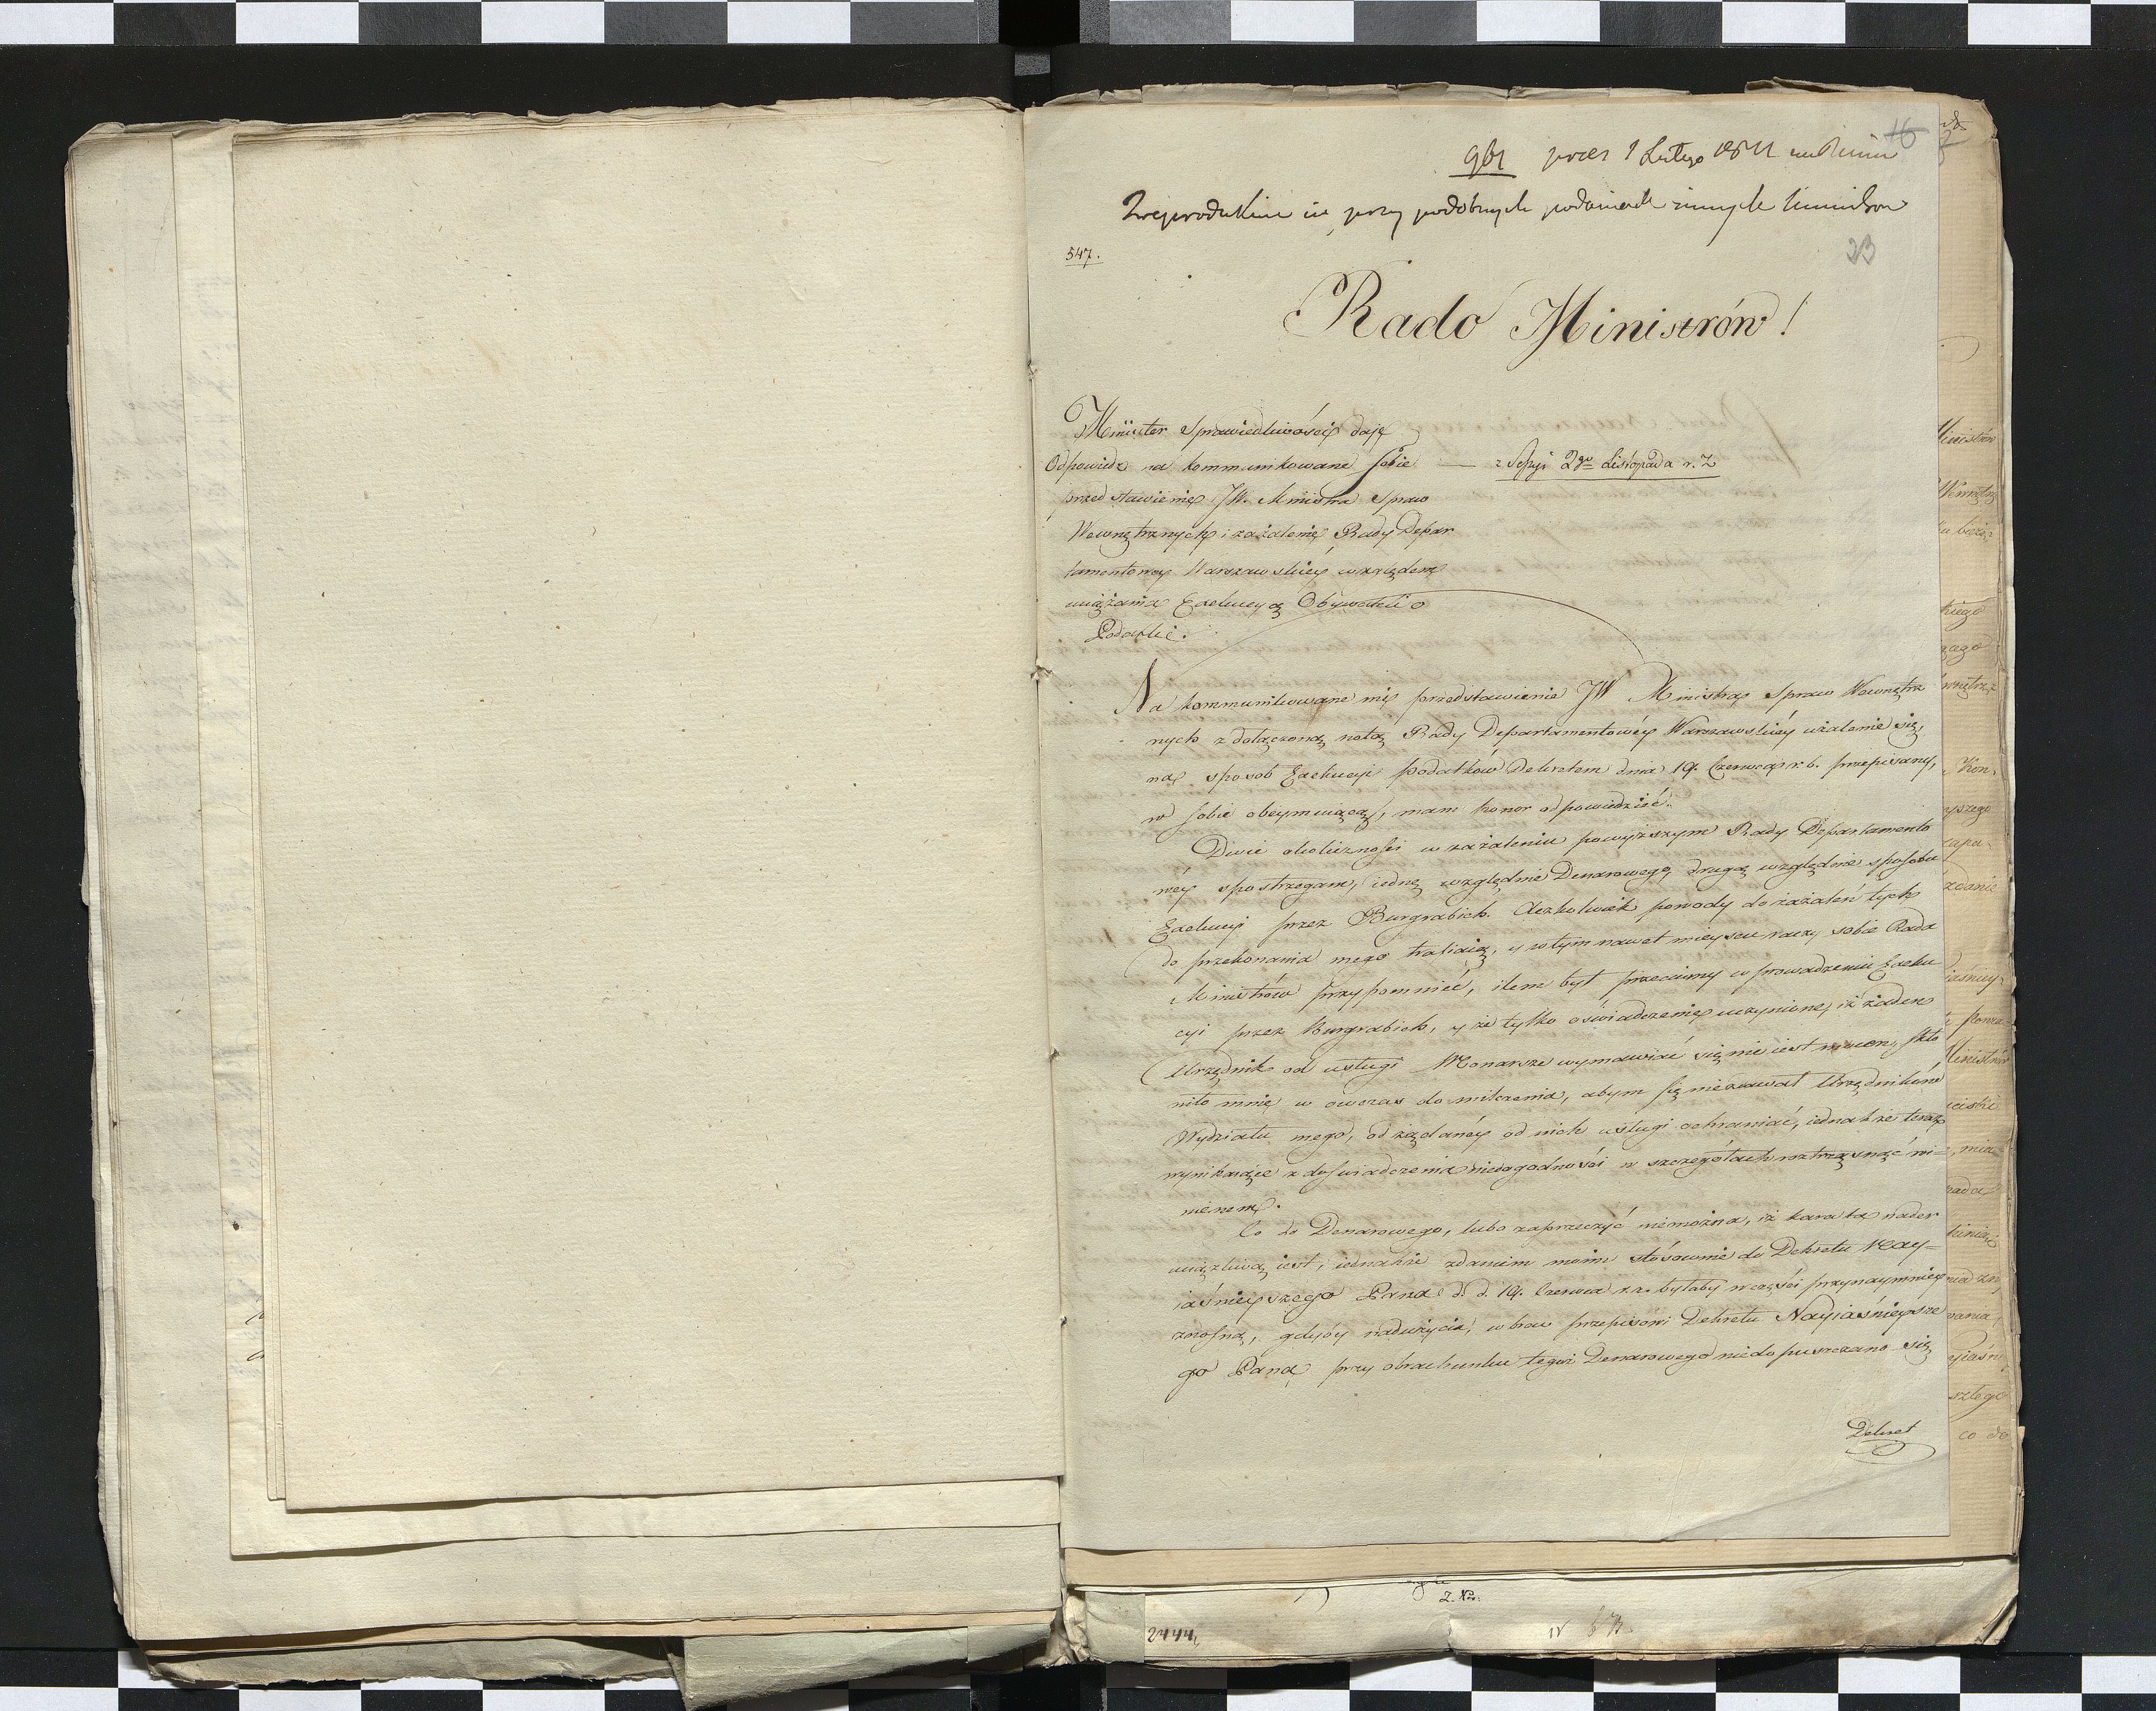 16
961 przez 1 Lutego 1811
Zreprodukuie się przy podobnych podaniach innych
547.
23
Rado Ministrów!
Minister Sprawiedliwości daje
Odpowiedz na kommunikowane sobie — z Sessyi 2go Listopada r. z
przedstawienie JW. Ministra Spraw
Wewnętrznych i zażalenie Rady Depar
tamentowey Warszawskiey względem
uciążania Exekucyą Obywateli o
Podatki.
Na kommunikowane mi przedstawienie JW Ministra Spraw Wewnętrz
nych z dołączoną notą Rady Departamentowéy Warszawskiéy użalenie się,
na sposob Exekucyi podatków Dekretem dnia 19. Czerwca r. b. przepisany,
w sobie obeymuiącą, mam honor odpowiedzieć.
Dwie okoliczności w zażaleniu powyższym Rady Departamento
wéy spostrzegam, iednę względnie Denarowego, drugą względnie sposobu
Exekucyi przez Burgrabich. Aczkolwiek powody do zażaleń tych
do przekonania mego trafiaią, y w tym nawet mieyscu raczy sobie Rada
Ministrów przypomnieć, ilem był przeciwny wprowadzeniu Exeku
cyi przez Burgrabich, y że tylko oświadczenie uczynione, iż żaden
Urzędnik od usługi Monarsze wymawiać się nie iest mocen, skło
niło mnie w ówczas do milczenia, abym się niezdawał Urzędników
Wydziału mego, od żądanéy od nich usługi ochraniać, iednakże teraz
wynikaiące z doświadczenia niedogodności w szczegółach roztrząsnąć wi=
nienem.
Co do Denarowego, lubo zaprzeczyć niemożna, iż kara ta nader
uciążliwą iest, iednakże zdaniem moim stósownie do Dekretu Nay=
iaśnieyszego Pana d. d. 19. Czerwca r. z. byłaby w części przynaymniey
znośną, gdyby nadużycia, wbrew przepisowi Dekretu Nayiaśnieysze
go Pana przy obrachunku tegoż Denarowego niedopuszczano się
Dekret
2444